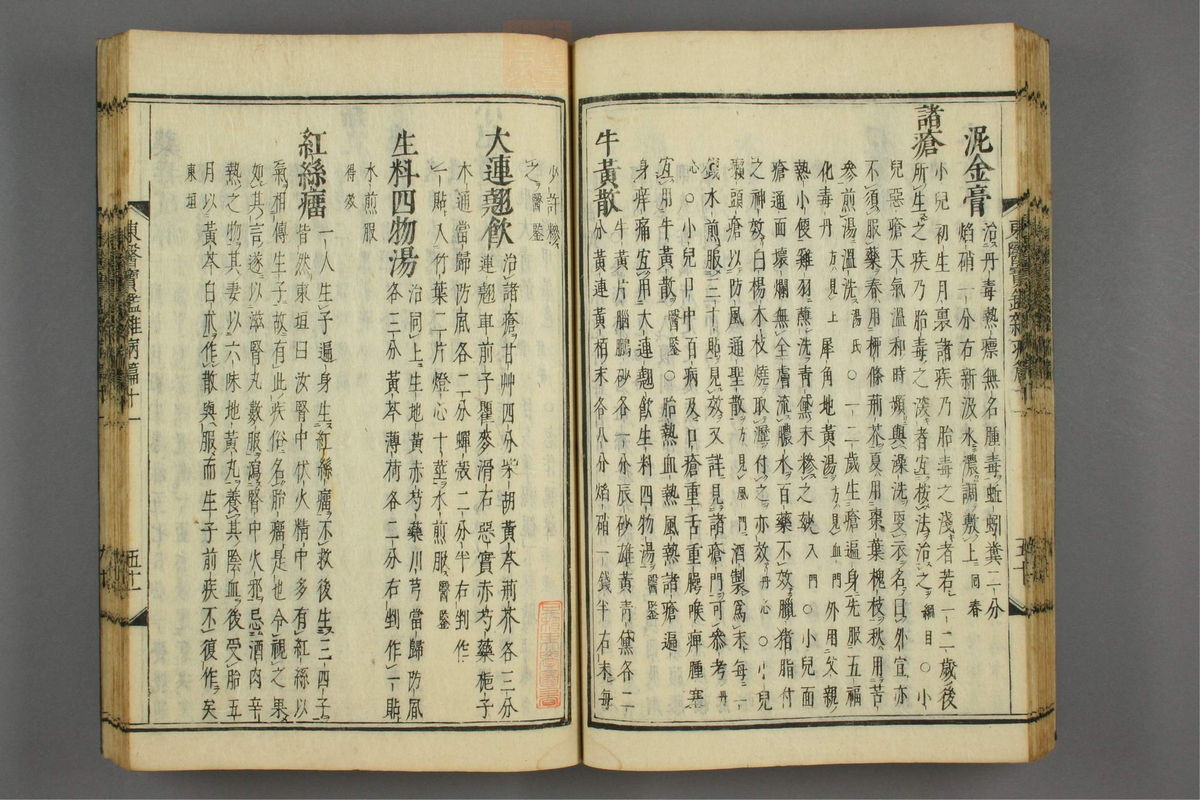 泥金膏 治丹毒熱瘭無名腫毒蚯蚓糞二分
焰硝一分右新汲水濃調敷上 回春
諸瘡 小兒初生月裏諸疾乃胎毒之淺者若一二歲後
所生之疾乃胎毒之深者宜按法治之 綱目 〇小
兒惡瘡天氣溫和時頻與澡洗更衣名曰外宣亦
不須服藥春用柳條荊芥夏用棗葉槐枝秋用苦
參煎湯溫洗 湯氏 〇一二歲生瘡遍身先服五福
化毒丹 方見上 犀角地黃湯 方見血門 外用父親
熱小便雞羽蘸洗青黛末摻之 入門 〇小兒面
瘡通面壞爛無全膚流膿水百藥不效臘猪脂付
之神效白楊木枝燒取瀝付之亦效 丹心 〇小兒
頭瘡以防風通聖散 方見風門 酒製爲末每一
錢水煎服三十貼見效又詳見諸瘡門可參考 丹
心 〇小兒口中百病及口瘡重舌重腭喉痺腫塞
宜用牛黃散 醫鑒 〇胎熱血熱風熱諸瘡遍
身痒痛宜用大連翹飮生料四物湯 醫鑒
牛黃散 牛黃片腦鵬砂各一分辰砂雄黃青黛各二
分黃連黃栢末各八分焰硝一錢半右末每
少許摻
之 醫鑒
大連翹飮 治諸瘡甘艸四分柴胡黃芩荊芥各三分
連翹車前子瞿麥滑石惡實赤芍藥梔子
木通當歸防風各二分蟬殼二分半右剉作
一貼入竹葉二片燈心十莖水煎服 醫鑒
生料四物湯 治同上生地黃赤芍藥川芎當歸防風
各三分黃芩薄荷各二分右剉作一貼
水煎服
得效
紅絲瘤 一人生子遍身生紅絲瘤不救後生三四子
皆然東垣曰汝腎中伏火精中多有紅絲以
氣相傳生子故有此疾俗名胎瘤是也令視之果
如其言遂以滋腎丸數服瀉腎中火邪忌酒肉辛
熱之物其妻以六味地黃丸養其陰血後受胎五
月以黃芩白朮作散與服而生子前疾不復作矣
東垣
東醫寶鑑雜病篇十一
五十一